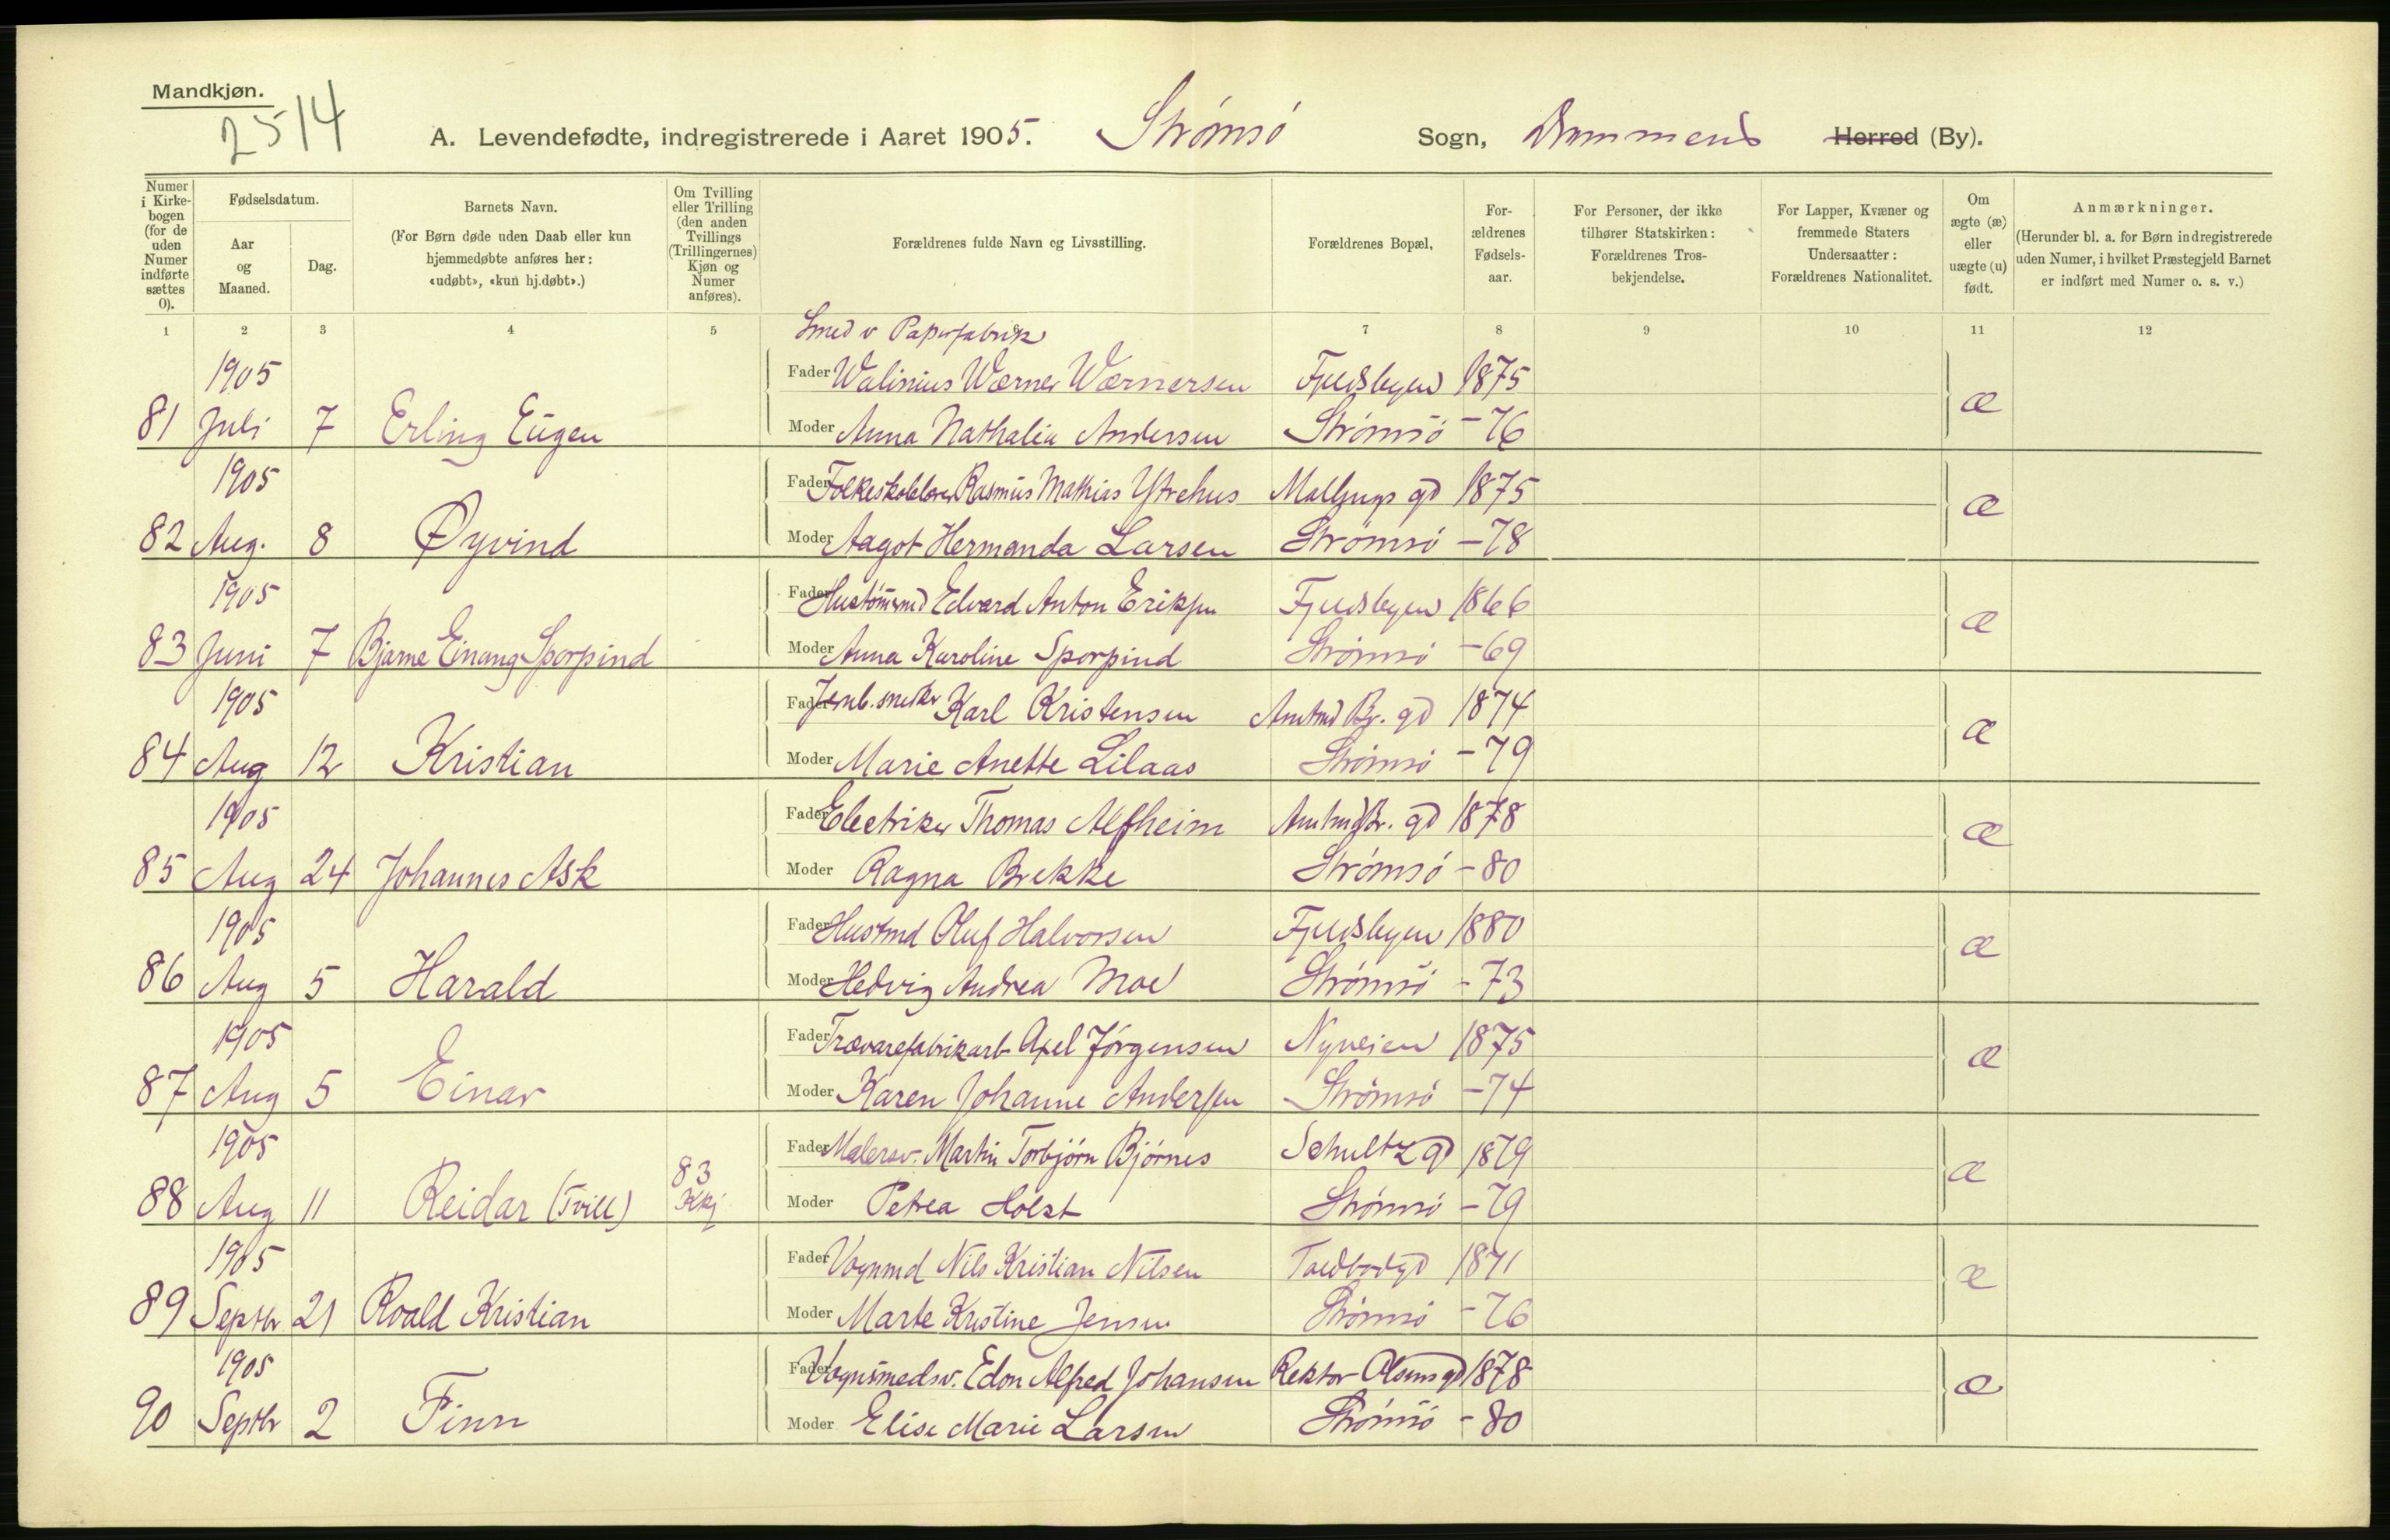 Mandkjøn.
2514
A. Levendefødte, indregistrerede i Aaret 1905. Strømsø Sogn, Drammens Herred (By).
Numer i Kirkebogen (for de uden Numer indførte sættes 0).
Fødselsdatum.
Aar og Maaned.
Dag.
Barnets Navn.
(For Børn døde uden Daab eller kun hjemmedøbte anføres her: «udøbt», «kun hj.døbt».)
Om Tvilling eller Trilling (den anden Tvillings (Trillingernes) Kjøn og Numer anføres).
Forældrenes fulde Navn og Livsstilling.
Forældrenes Bopæl,
Forældrenes Fødselsaar.
For Personer, der ikke tilhører Statskirken: Forældrenes Trosbekjendelse.
For Lapper, Kvæner og fremmede Staters Undersaatter: Forældrenes Nationalitet.
Om ægte (æ) eller uægte (u) født.
Anmærkninger.
(Herunder bl. a. for Børn indregistrerede uden Numer, i hvilket Præstegjeld Barnet er indført med Numer o. s. v.)
1 2 3 4 5 6 7 8 9 10 11 12
Smed v Papirfabrik
1905 Fader Walinius Werner Wernersen Fjeldsbyen 1875 æ
81 Juli 7 Erling Eugen Moder Anna Nathalia Andersen Strømsø -76
1905 Fader Folkeskolelærer Rasmus Mathias Ytrehus gd 1875 æ
82 Aug. 8 Øyvind Moder Aagot Hermanda Larsen Strømsø -78
1905 Fader Edvard Anton Eriksen Fjeldsbyen 1866 æ
83 Juni 7 Bjarne Einang Sporpind Moder Anna Karoline Sporpind Strømsø -69
1905 Fader Karl Kristensen Amtmd Br. gd 1874 æ
84 Aug 12 Kristian Moder Marie Anette Lilaas Strømsø -79
1905 Fader Electriker Thomas Alfheim Amtmd Br. gd 1878 æ
85 Aug 24 Johannes Ask Moder Ragna Brekke Strømsø -80
1905 Fader Hustmd Oluf Halvorsen Fjeldsbyen 1880 æ
86 Aug 5 Harald Moder Hedvig Andrea Moe Strømsø -73
1905 Fader Trævarefabrikarb Axel Jørgensen Nyveien 1875 æ
87 Aug 5 Einar Moder Karen Johanne Andersen Strømsø -74
1905 Fader Malersv. Martin Torbjørn Bjørnes Schultz gd 1879 æ
88 Aug 11 Reidar (Tvill) 83 Kkj Moder Petrea Holst Strømsø -79
1905 Fader Vognmd Nils Kristian Nilsen Toldbodgd 1871 æ
89 Septbr 21 Roald Kristian Moder Marte Kristine Jensen Strømsø -76
1905 Fader Vognsmedsv. Edon Alfred Johansen Rektor Olsens gd 1878 æ
90 Septbr 2 Finn Moder Elise Marie Larsen Strømsø -80